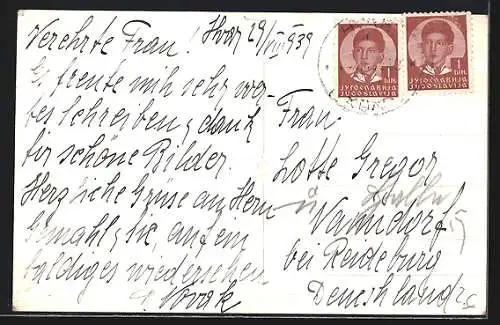 Hvar 29/VIII 939
Verehrte Frau!
Es freute mich sehr wer-
tes schreiben, dank
für schöne Bilder.
Herzliche Grüse an Hern
Gemahl, sie, auf ein
baldiges wiedersehen
Novak
ЈУГОСЛАВИЈА
JUGOSLAVIJA
1 DIN.
ЈУГОСЛАВИЈА
JUGOSLAVIJA
1 DIN.
Frau
Lotte Gregor
bei Reideburg
Deueshland